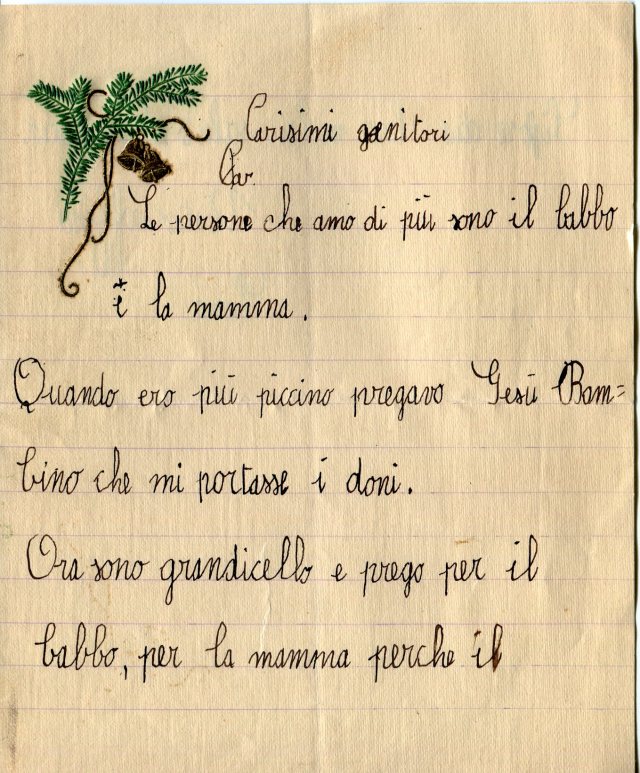 Carisimi genitori
Car
Le persone che amo di più sono il babbo
è la mamma.
Quando ero più piccino pregavo Gesù Bam=
bino che mi portasse i doni.
Ora sono grandicello e prego per il
babbo, per la mamma perche il